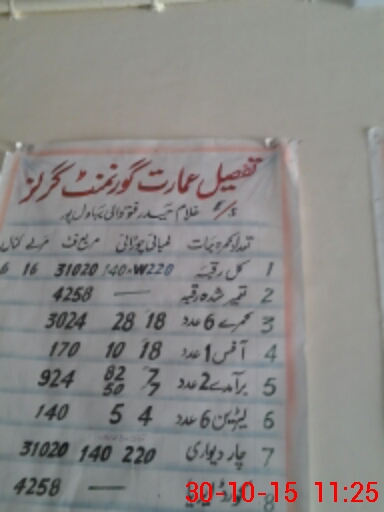 تفصیل عمارت گورنمنٹ گرلز
غلام حیدر بہاول پور
تعداد کمرہ جات لمبائی چوڑائی مربع فٹ مرلے کنال
1 کل رقبہ W220 140 31020 16 6
2 تعمیر شدہ رقبہ — 4258
3 کمرے 6 عدد 18 28 3024
4 آفس 1 عدد 18 10 170
5 برآمدے 2 عدد 7 82 924
7 50
6 لیٹرین 6 عدد 4 5 140
7 چار دیواری 220 140 31020
8 — 4258
30-10-15 11:25